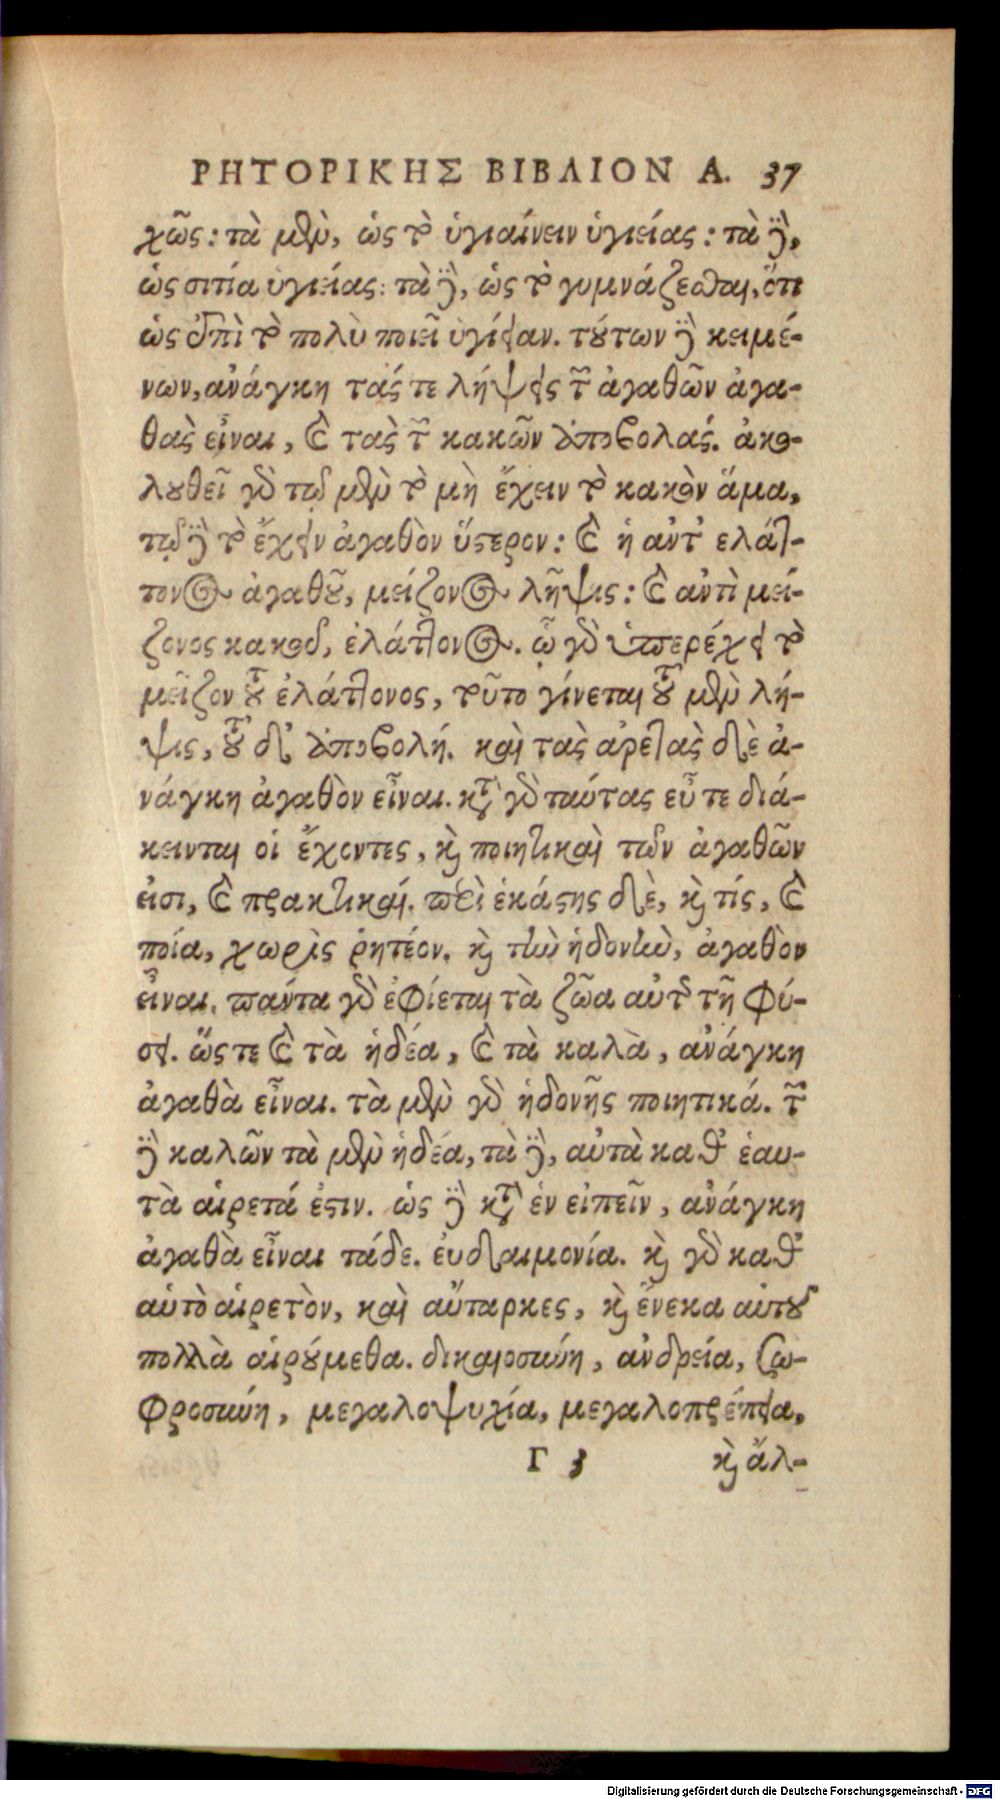 ΡΗΤΟΡΙΚΗΣ ΒΙΒΛΙΟΝ Α. 37
χῶς: τὰ μὲν, ὡς τὸ ὑγιαίνειν ὑγιείας: τὰ δὲ,
ὡς σιτία ὑγιείας: τὰ δὲ, ὡς τὸ γυμνάζεσθαι, ὅτι
ὡς ἐπὶ τὸ πολὺ ποιεῖ ὑγίειαν. τούτων δὲ κειμέ-
νων, ἀνάγκη τάς τε λήψεις τῶν ἀγαθῶν ἀγα-
θὰς εἶναι, καὶ τὰς τῶν κακῶν ἀποβολάς. ἀκο-
λουθεῖ γὰρ τῷ μὲν τὸ μὴ ἔχειν τὸ κακὸν ἅμα,
τῷ δὲ τὸ ἔχειν ἀγαθὸν ὕστερον: καὶ ἡ ἀντ' ελάτ-
τονος ἀγαθοῦ, μείζονος λῆψις: καὶ ἀντὶ μεί-
ζονος κακοῦ, ἐλάττονος. ᾧ γὰρ ὑπερέχει τὸ
μεῖζον τοῦ ἐλάττονος, τοῦτο γίνεται τοῦ μὲν λή-
ψις, τοῦ δ' ἀποβολή. καὶ τὰς ἀρετὰς δὲ ἀ-
νάγκη ἀγαθὸν εἶναι. κατὰ γὰρ ταύτας εὖ τε διά-
κεινται οἱ ἔχοντες, καὶ ποιητικαὶ τῶν ἀγαθῶν
εἰσι, καὶ πρακτικαί. περὶ ἑκάστης δὲ, καὶ τίς, καὶ
ποία, χωρὶς ῥητέον. καὶ τὴν ἡδονὴν, ἀγαθὸν
εἶναι. πάντα γὰρ ἐφίεται τὰ ζῶα αὐτῆς τῇ φύ-
σει. ὥστε καὶ τὰ ἡδέα, καὶ τὰ καλὰ, ἀνάγκη
ἀγαθὰ εἶναι. τὰ μὲν γὰρ ἡδονῆς ποιητικά. τῶν
δὲ καλῶν τὰ μὲν ἡδέα, τὰ δὲ, αὐτὰ καθ' ἑαυ-
τὰ αἱρετά ἐστιν. ὡς δὲ καθ' ἓν εἰπεῖν, ἀνάγκη
ἀγαθὰ εἶναι τάδε. ἐυδαιμονία. καὶ γὰρ καθ'
αὑτὸ αἱρετὸν, καὶ αὔταρκες, καὶ ἕνεκα αὐτοῦ
πολλὰ αἱρούμεθα. δικαιοσύνη, ἀνδρεία, σω-
φροσύνη, μεγαλοψυχία, μεγαλοπρέπεια,
Γ 3 καὶ ἄλ-
Digitalisierung gefördert durch die Deutsche Forschungsgemeinschaft - DFG